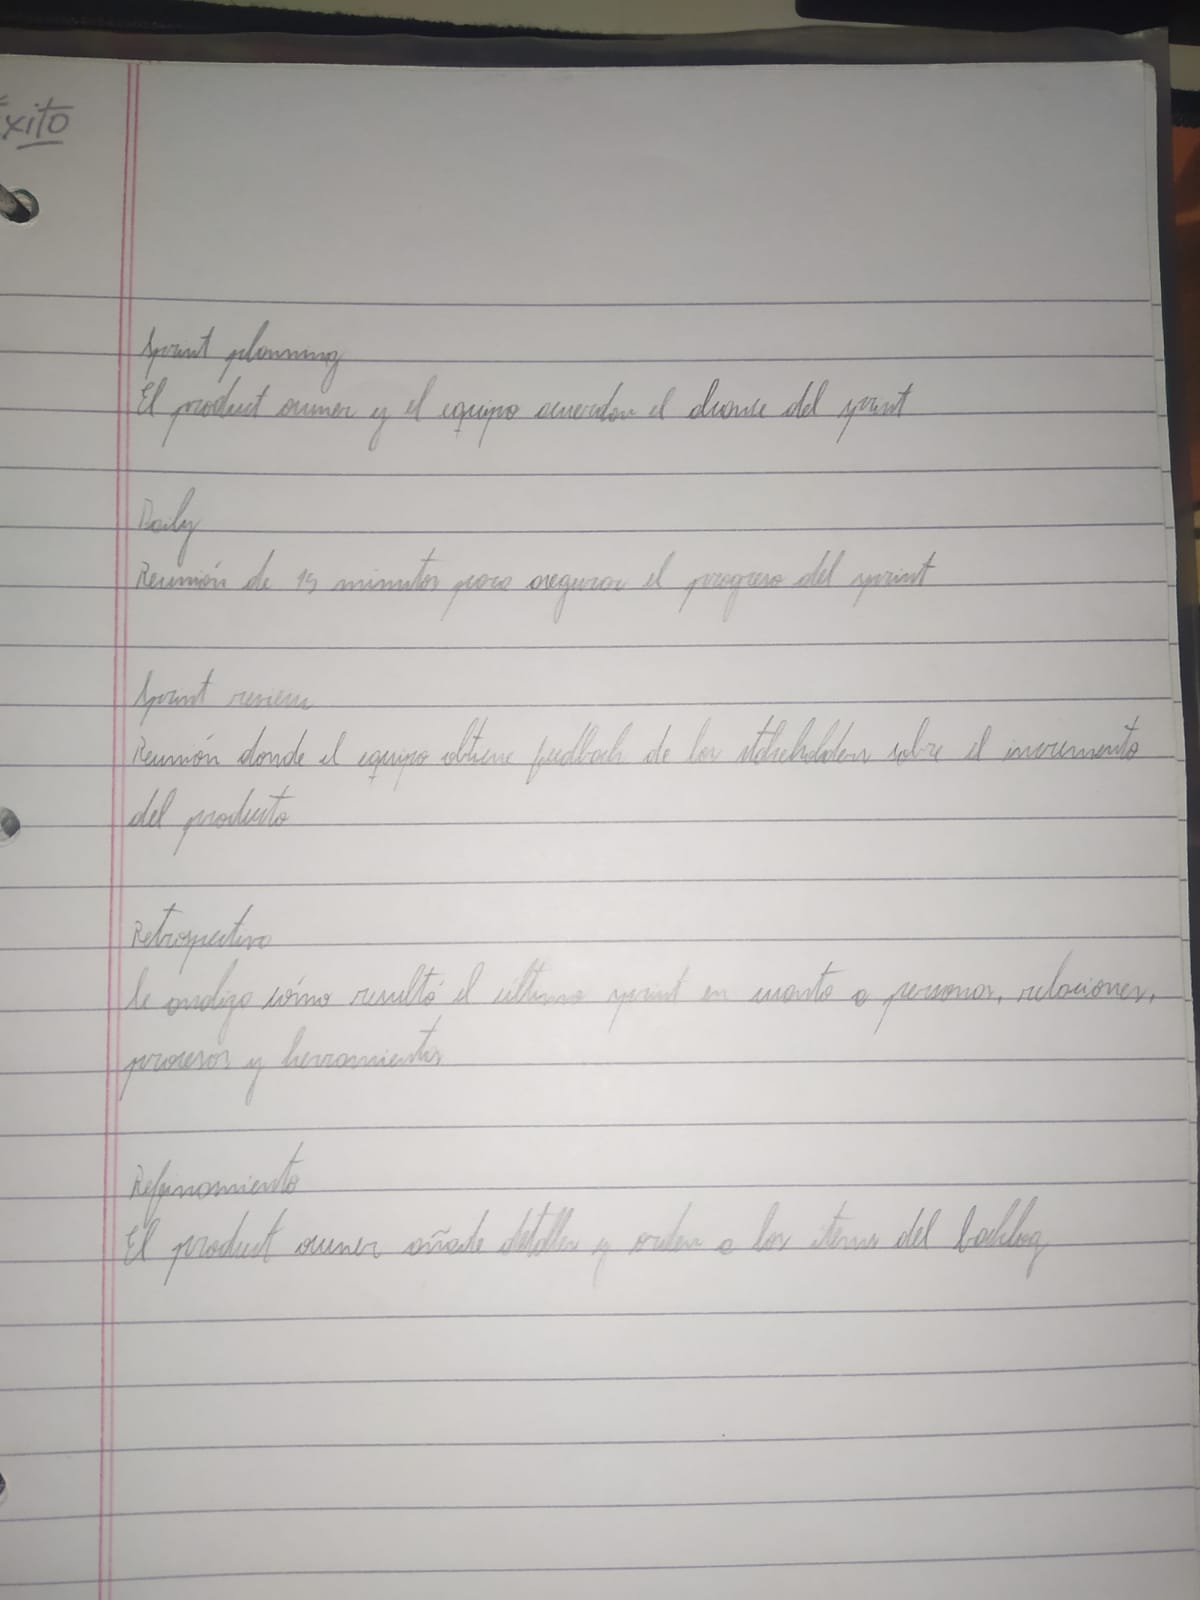 Éxito
Sprint planning
El product owner y el equipo acuerdan el alcance del sprint
Daily
Reunión de 15 minutos para asegurar el progreso del sprint
Sprint review
Reunión donde el equipo obtiene feedback de los stakeholders sobre el incremento
del producto
Retrospectiva
Se analiza cómo resultó el último sprint en cuanto a personas, relaciones,
procesos y herramientas
Refinamiento
El product owner añade detalles y orden a los items del backlog